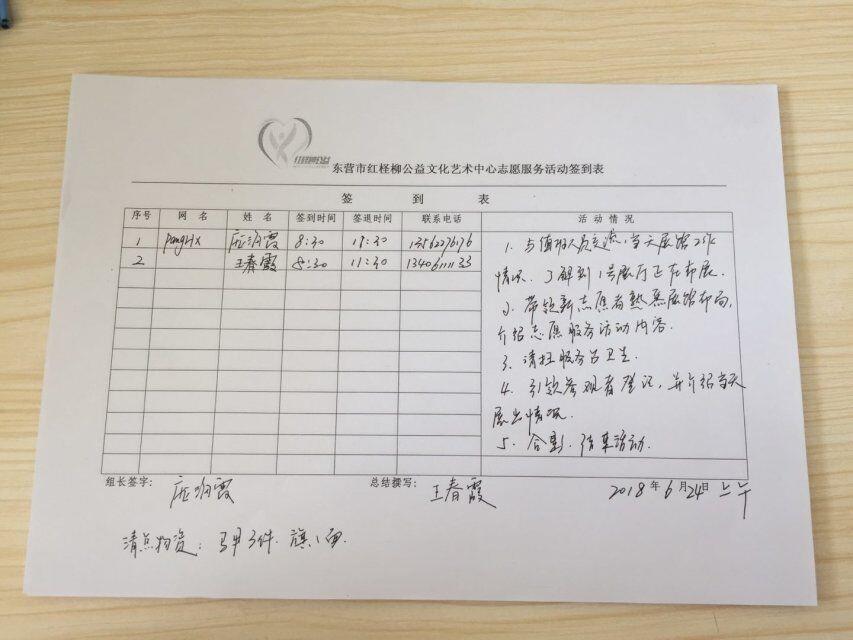 东营市红柽柳公益文化艺术中心志愿服务活动签到表
签 到 表
序号 网 名 姓 名 签到时间 签退时间 联系电话 活 动 情 况
1 8:30 13562276176
2 王春霞 8:30 11:30 13406111133
1. 与值班人员交流,当天展馆工作
情况、了解到1号展厅正在布展.
2. 带领新志愿者熟悉展馆布局,
介绍志愿服务活动内容.
3. 清扫服务台卫生.
4. 引领参观者登记,并介绍当天
展出情况.
5. 合影,结束活动.
组长签字:
总结撰写: 王春霞
2018年6月24日 上午
清点物资: 马甲3件. 旗1面.